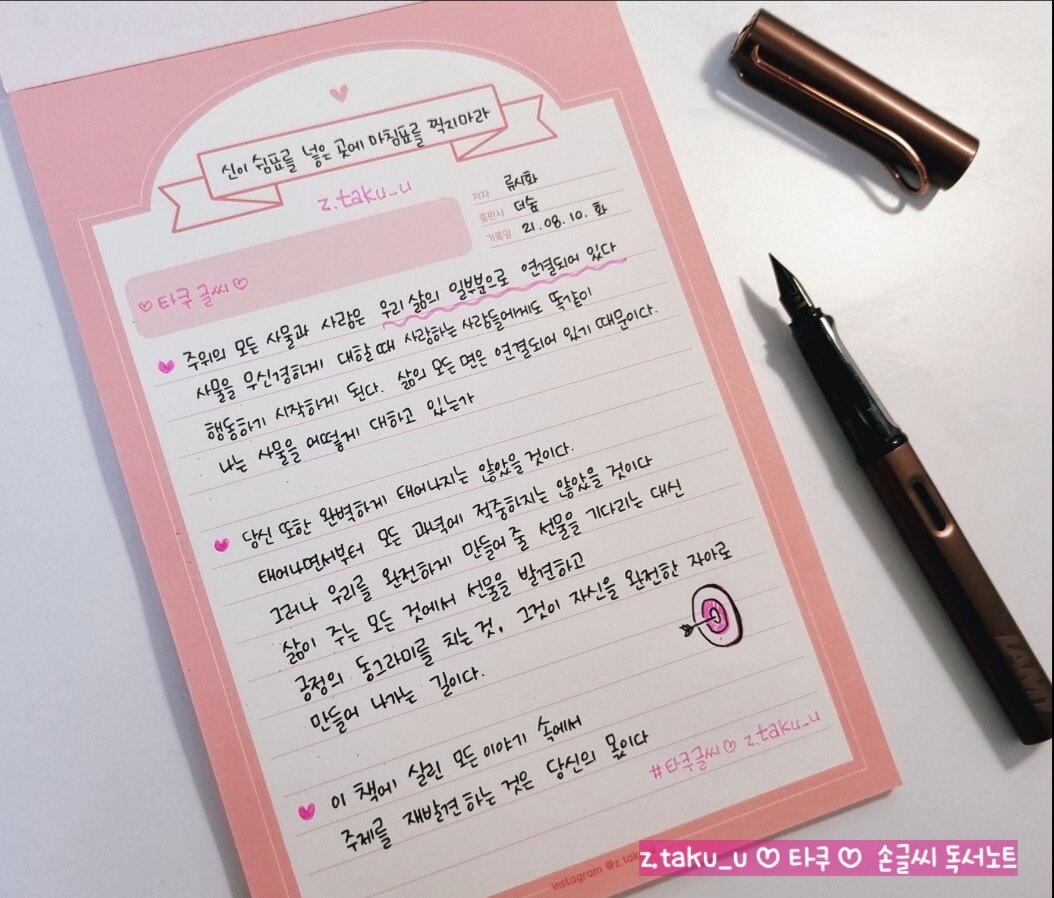 신이 쉼표를 넣은 곳에 마침표를 찍지마라
z.taku_u
저자 류시화
출판사 더숲
기록일 21.08.10. 화
♡타쿠글씨♡
주위의 모든 사물과 사람은 우리 삶의 일부분으로 연결되어 있다
사물을 무신경하게 대할 때 사랑하는 사람들에게도 똑같이
행동하기 시작하게 된다. 삶의 모든 면은 연결되어 있기 때문이다.
나는 사물을 어떻게 대하고 있는가
당신 또한 완벽하게 태어나지는 않았을 것이다.
태어나면서부터 모든 과녁에 적중하지는 않았을 것이다
그러나 우리를 완전하게 만들어 줄 선물을 기다리는 대신
삶이 주는 모든 것에서 선물을 발견하고
긍정의 동그라미를 치는 것, 그것이 자신을 완전한 자아로
만들어 나가는 길이다.
이 책에 실린 모든 이야기 속에서
주제를 재발견하는 것은 당신의 몫이다
#타쿠글씨♡ z.taku_u
instagram @z.taku
LAMY
z.taku_u ♡ 타쿠 ♡ 손글씨 독서노트